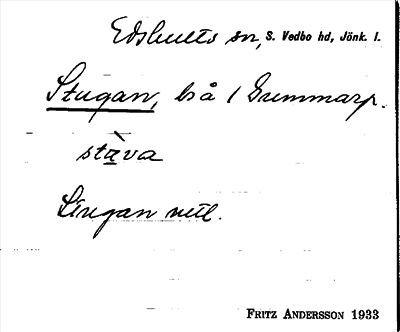 Edshults sn, S. Vedbo hd, Jönk. l.
Stugan, bså 1 Gummarp.
stàva
Stugan mtl.
FRITZ ANDERSSON 1933